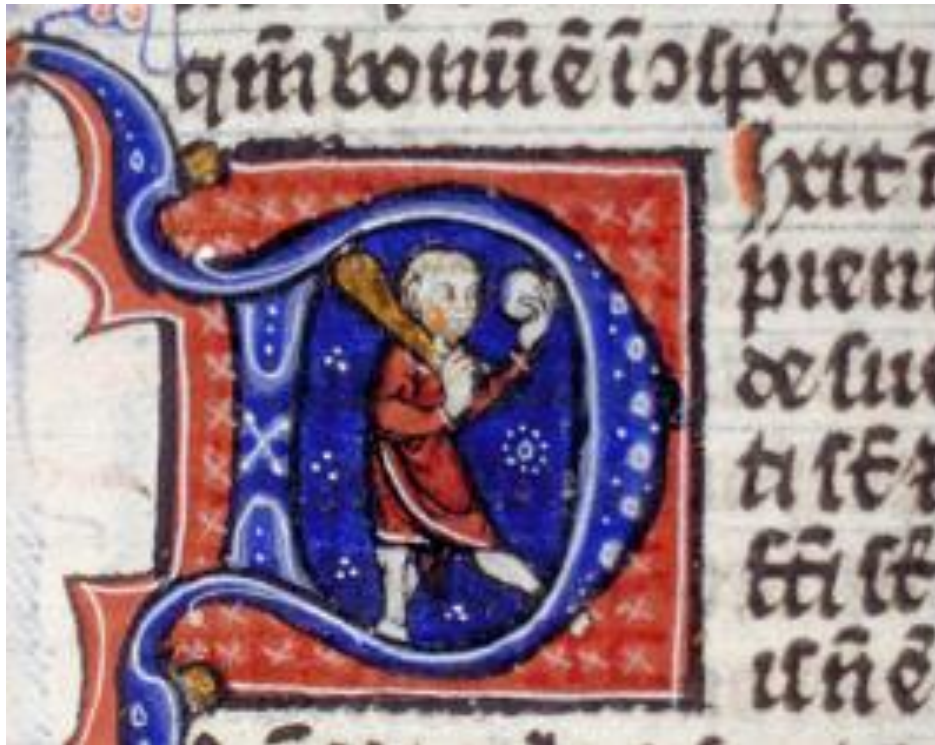 qm̄ bonū ē ī ɔspectu
Dixit ī
pien
de su
ti st̄
st̄
us n̄ ē